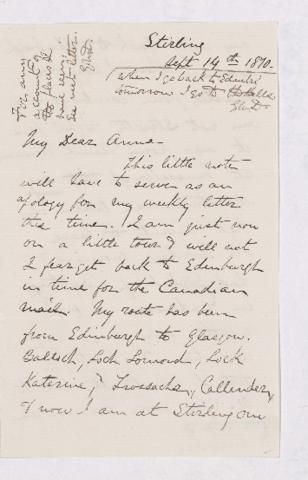 Stirling
Sept 14th 1870.
When I go back to Edinbro
tomorrow I go to
For any
account of
the places I
have seen
see next letter.
My Dear Anna
This little note
will have to serve as an
apology for my weekly letter
this time. I am just now
on a little tour & will not
I fear get back to Edinburgh
in time for the Canadian
mail. My route has been
from Edinburgh to Glasgow.
Balloch, Loch Lomond, Lock
Katerine, Trossachs, Callender,
& now I am at Stirling on